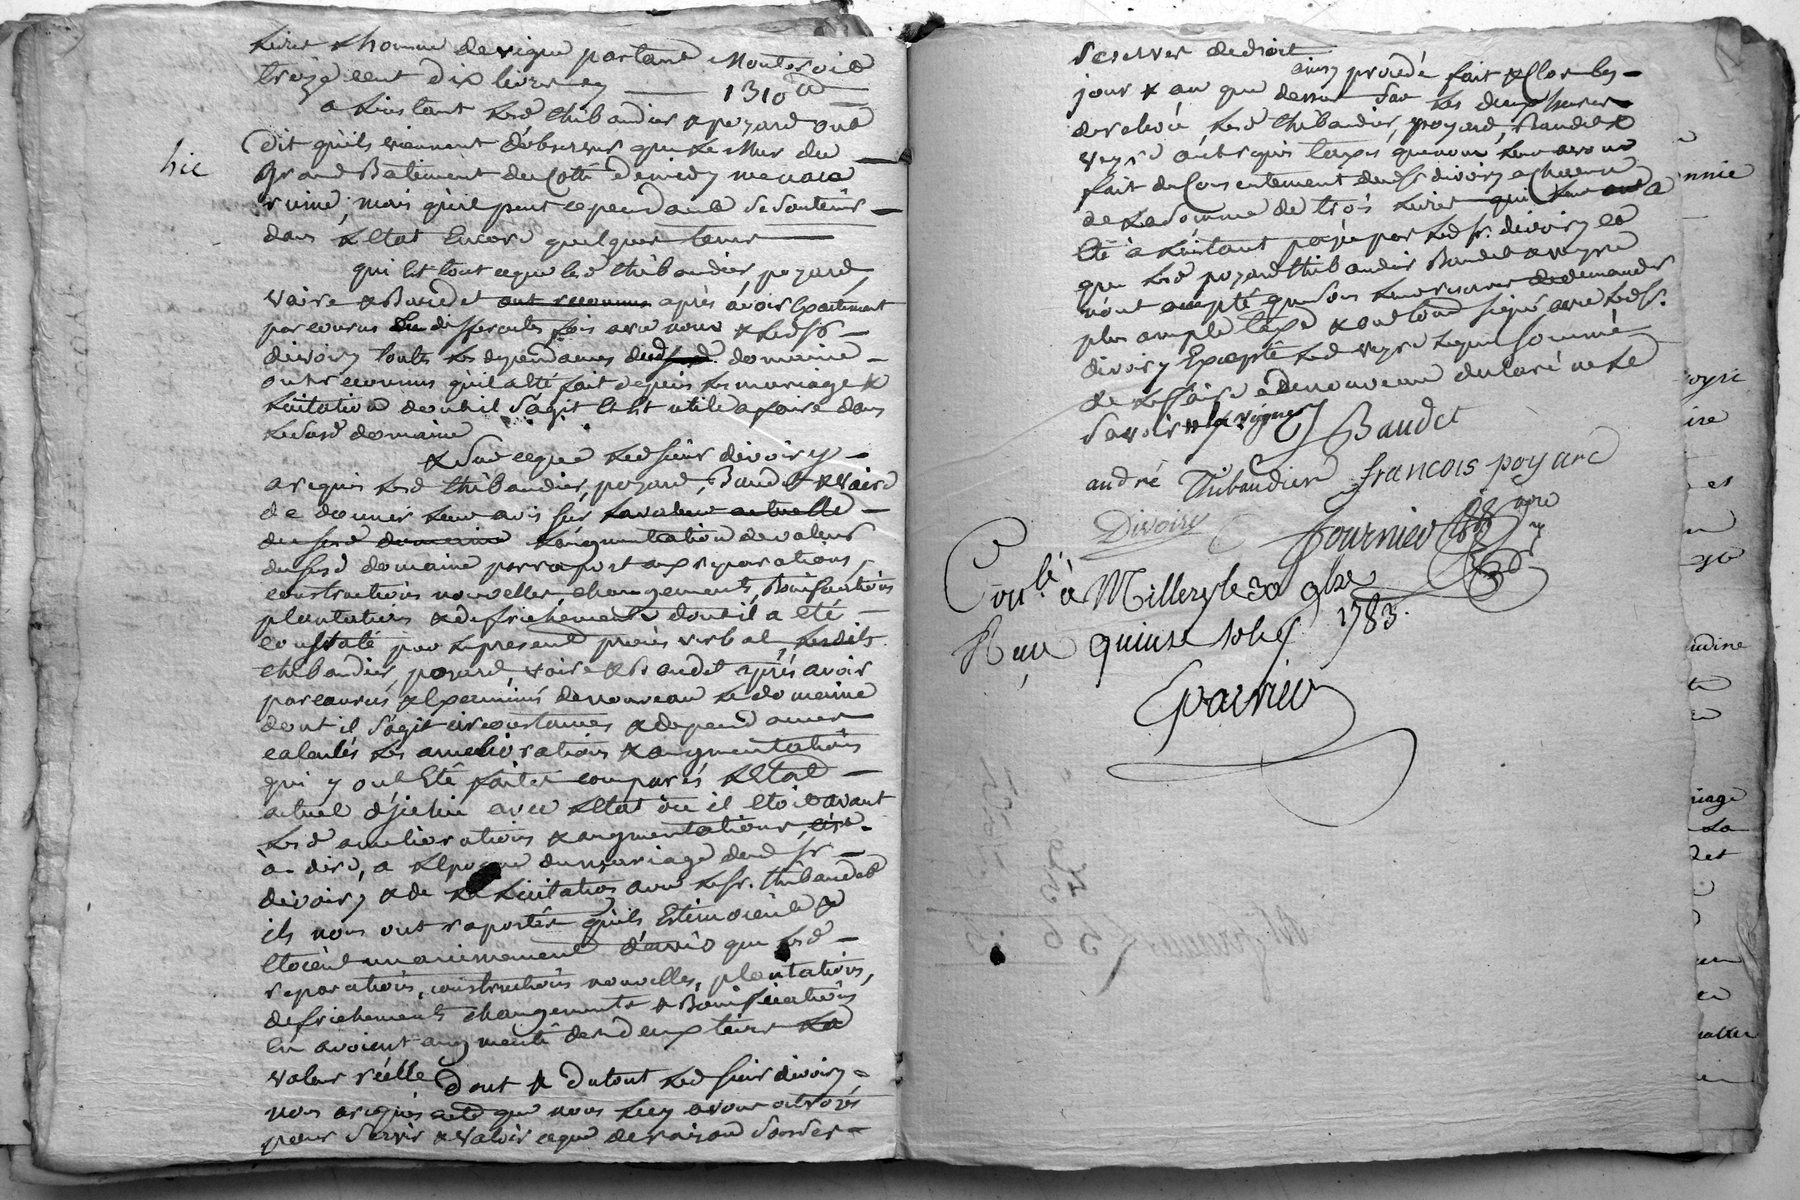 livres & homme de vigne partant Monteroit a
treize cent dix livres cy — 1310 ᵗᵗ
a l'instant lesd thibaudier & poyard ont
hic
dit qu'ils viennent d'observer que le mur du
grand Batiment du Cotté de midy menace
ruine, mais qu'il peut cependant se soutenir
dans l'Etat Encore quelques tems
qui est tout ce que lesd thibaudier, poyard,
vaire & Baudet ont reconnu après avoir Exactement
parcourus differentes fois avec nous & led sr
divoiry toutes les dependances dud domaine
ont reconnus qu'il a été fait depuis les mariage &
licitation dont il s'agit Et est utile a faire dans
le susd domaine
& sur ce que led sieur divoiry
a requis lesd thibaudier, poyard, Baudet & vaire
de donner leur avis sur la valeur actuelle
du susd domaine l'augmentation de valeur
du susd domaine par raport aux reparations,
constructions nouvelles, changements, Bonifications
plantations & defrichements dont il a été
constaté par le present procès verbal, lesdits
thibaudier, poyard, vaire & Baudet après avoir
parcourus & Examinés de nouveau le domaine
dont il s'agit circonstances & dependances
calculés les ameliorations & augmentations
qui y ont Eté faites comparés l'Etat
actuel d'jcelui avec l'Etat ou il Etoit avant
lesd ameliorations & augmentations, c'est
a dire, a l'Epoque du mariage dud sr
divoiry & de la licitation avec le sr. thibaudet
ils nous ont raportés qu'ils Estimoient &
Etoient unanimement d'avis que lesd
reparations, constructions nouvelles, plantations,
defrichements changements & Bonifications
en avoient augmenté des deux tiers la
valeur réelle dont & du tout led sieur divoiry
nous a requis acte que nous luy avons octroyés
pour servir & valoir ce que de raison sous les
reserves de droit
ainsy procedé fait & Clos les
jour & an que dessus sur les deux heures
de relevée, lesd thibaudier, poyard, Baudet &
veyre ont requis taxes que nous leur avons
fait du Consentement dud Sr divoiry a chacun
de la somme de trois livres qui leur a
Eté a l'instant payé par led sr. divoiry et
que lesd poyard thibaudier Baudet & veyre
n'ont accepté que sous leurs reserves de demander
plus ample taxe & ont tous signé avec led sr.
divoiry Excepté led veyre lequel sommé
de le faire a de nouveau declaré ne le
savoir
Baudet
andré Thibaudier francois poyard
Divoiry fournier
Conlé à Millery le 30 9bre
1783.
Reçu quinze sols